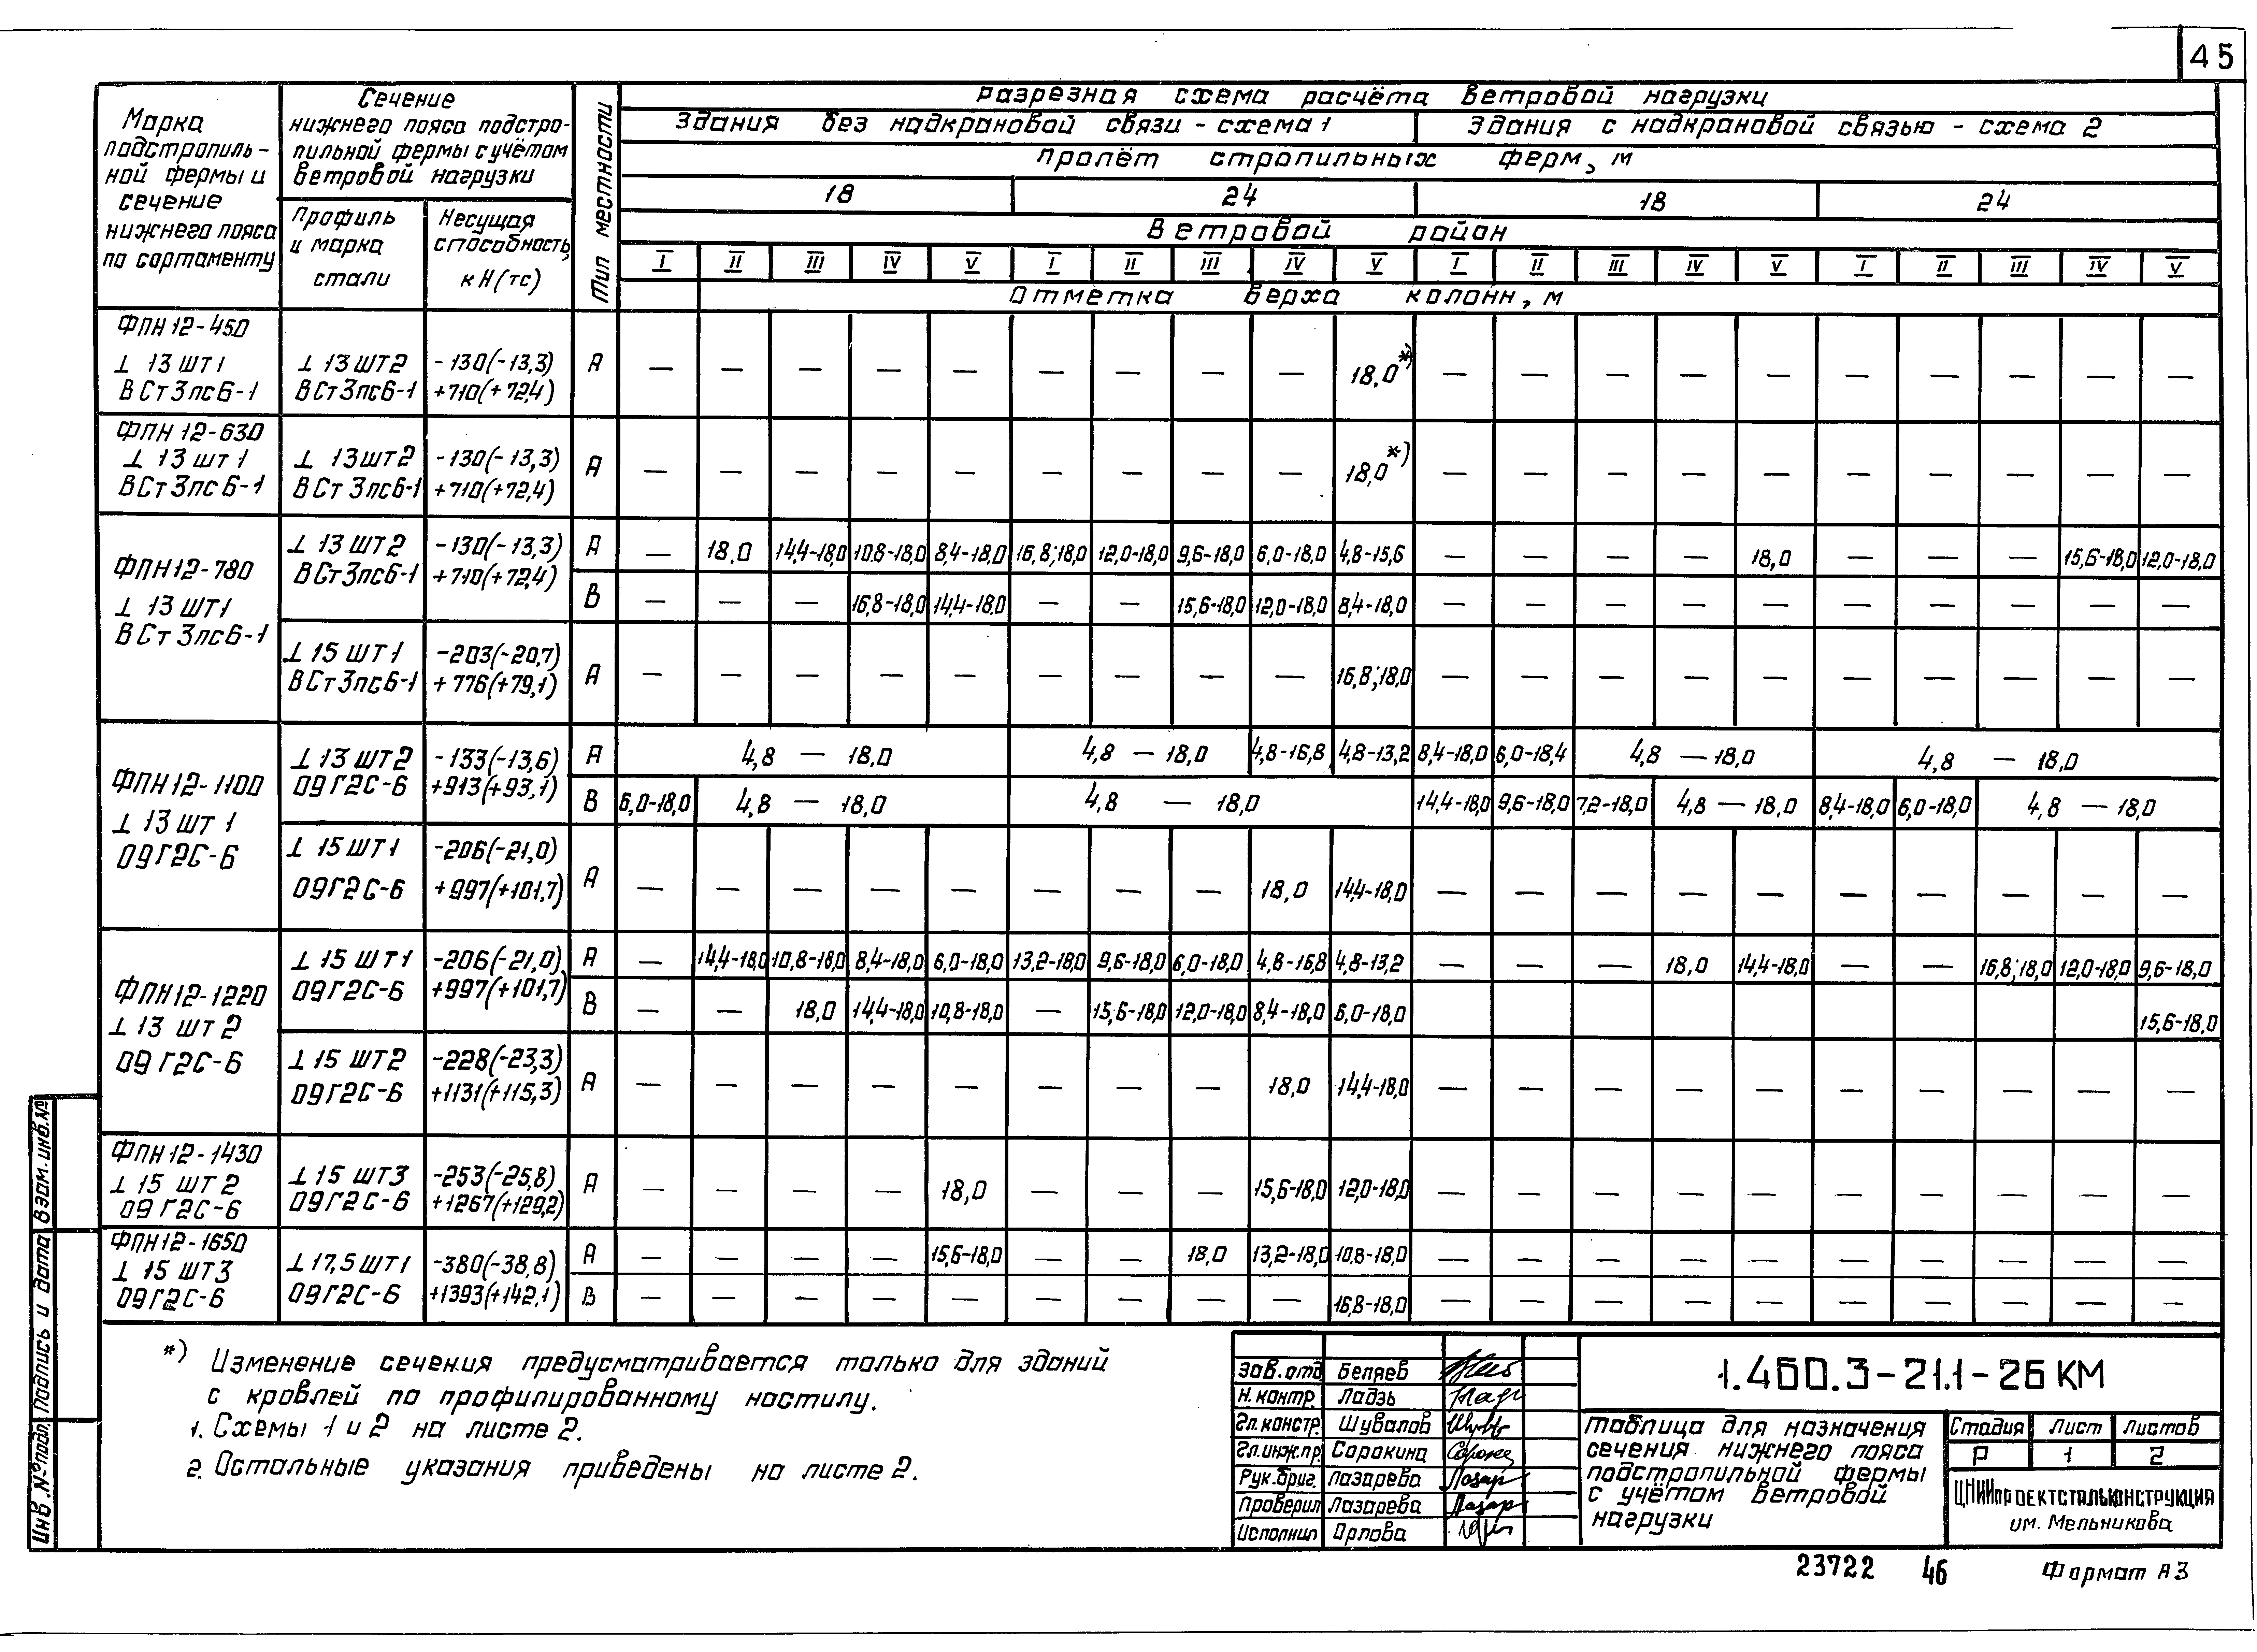 45
Марка подстропиль-ной фермы и сечение нижнего пояса по сортаменту
Сечение нижнего пояса подстро-пильной фермы с учётом ветровой нагрузки
Профиль и марка стали
Несущая способность, кН(тс)
Тип местности
Разрезная схема расчёта ветровой нагрузки
Здания без надкрановой связи - схема 1 Здания с надкрановой связью - схема 2
Пролёт стропильных ферм, м
18 24 18 24
Ветровой район
I II III IV V I II III IV V I II III IV V I II III IV V
Отметка верха колонн, м
ФПН12-450
⊥ 13 ШТ1 ⊥ 13 ШТ2 -130(-13,3) А — — — — — — — — — 18,0*) — — — — — — — — — —
ВСт3пс6-1 ВСт3пс6-1 +710(+72,4)
ФПН12-630
⊥ 13 шт1 ⊥ 13шт2 -130(-13,3) А — — — — — — — — — 18,0*) — — — — — — — — — —
ВСт3пс6-1 ВСт3пс6-1 +710(+72,4)
ФПН12-780
⊥ 13 ШТ1
ВСт3пс6-1
⊥ 13 ШТ2 -130(-13,3) А — 18,0 14,4-18,0 10,8-18,0 8,4-18,0 16,8;18,0 12,0-18,0 9,6-18,0 6,0-18,0 4,8-15,6 — — — — 18,0 — — — 15,6-18,0 12,0-18,0
ВСт3пс6-1 +710(+72,4)
В — — — 16,8-18,0 14,4-18,0 — — 15,6-18,0 12,0-18,0 8,4-18,0 — — — — — — — — — —
⊥ 15 ШТ1 -203(-20,7) А — — — — — — — — — 16,8;18,0 — — — — — — — — — —
ВСт3пс6-1 +776(+79,1)
ФПН12-1100
⊥ 13 ШТ 1
09Г2С-6
⊥ 13 ШТ2 -133(-13,6) А 4,8 — 18,0 4,8 — 18,0 4,8-16,8 4,8-13,2 8,4-18,0 6,0-18,4 4,8 — 18,0 4,8 — 18,0
09Г2С-6 +913(+93,1)
В 6,0-18,0 4,8 — 18,0 4,8 — 18,0 14,4-18,0 9,6-18,0 7,2-18,0 4,8 — 18,0 8,4-18,0 6,0-18,0 4,8 — 18,0
⊥ 15 ШТ1 -206(-21,0)
09Г2С-6 +997(+101,7) А — — — — — — — — 18,0 14,4-18,0 — — — — — — — — — —
ФПН12-1220
⊥ 13 ШТ 2
09Г2С-6
⊥ 15 ШТ1 -206(-21,0) А — 14,4-18,0 10,8-18,0 8,4-18,0 6,0-18,0 13,2-18,0 9,6-18,0 6,0-18,0 4,8-16,8 4,8-13,2 — — — 18,0 14,4-18,0 — — 16,8;18,0 12,0-18,0 9,6-18,0
09Г2С-6 +997(+101,7)
В — — 18,0 14,4-18,0 10,8-18,0 — 15,6-18,0 12,0-18,0 8,4-18,0 6,0-18,0 15,6-18,0
⊥ 15 ШТ2 -228(-23,3)
09Г2С-6 +1131(+115,3) А — — — — — — — — 18,0 14,4-18,0 — — — — — — — — — —
ФПН12-1430
⊥ 15 ШТ 2 ⊥ 15 ШТ3 -253(-25,8) А — — — — 18,0 — — — 15,6-18,0 12,0-18,0 — — — — — — — — — —
09Г2С-6 09Г2С-6 +1267(+129,2)
ФПН12-1650
⊥ 15 ШТ3 ⊥ 17,5 ШТ1 -380(-38,8) А — — — — 15,6-18,0 — — 18,0 13,2-18,0 10,8-18,0 — — — — — — — — — —
09Г2С-6 09Г2С-6 +1393(+142,1) В — — — — — — — — — 16,8-18,0 — — — — — — — — — —
*) Изменение сечения предусматривается только для зданий
с кровлей по профилированному настилу.
1. Схемы 1 и 2 на листе 2.
2. Остальные указания приведены на листе 2.
Зав.отд. Беляев
Н.контр. Ладзь
Гл.констр. Шувалов
Гл.инж.пр. Сорокина
Рук.бриг. Лазарева
Проверил Лазарева
Исполнил Орлова
1.460.3-21.1-26 КМ
Таблица для назначения
сечения нижнего пояса
подстропильной фермы
с учётом ветровой
нагрузки
Стадия Лист Листов
Р 1 2
ЦНИИпроектстальконструкция
им. Мельникова
23722 46 Формат А3
Инв.№подл. Подпись и дата Взам.инв.№